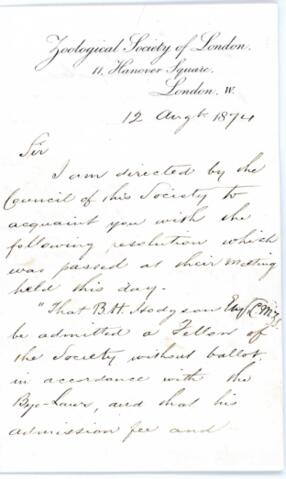 Zoological Society of London.
11, Hanover Square.
London. W.
12 Augt 1874
Sir
I am directed by the
Council of this Society to
acquaint you with the
following resolution which
was passed at their meeting
held this day.
"That B. H. Hodgson Esq
be admitted a Fellow of
the Society without ballot
in accordance with the
Bye-Laws, and that his
admission fee and